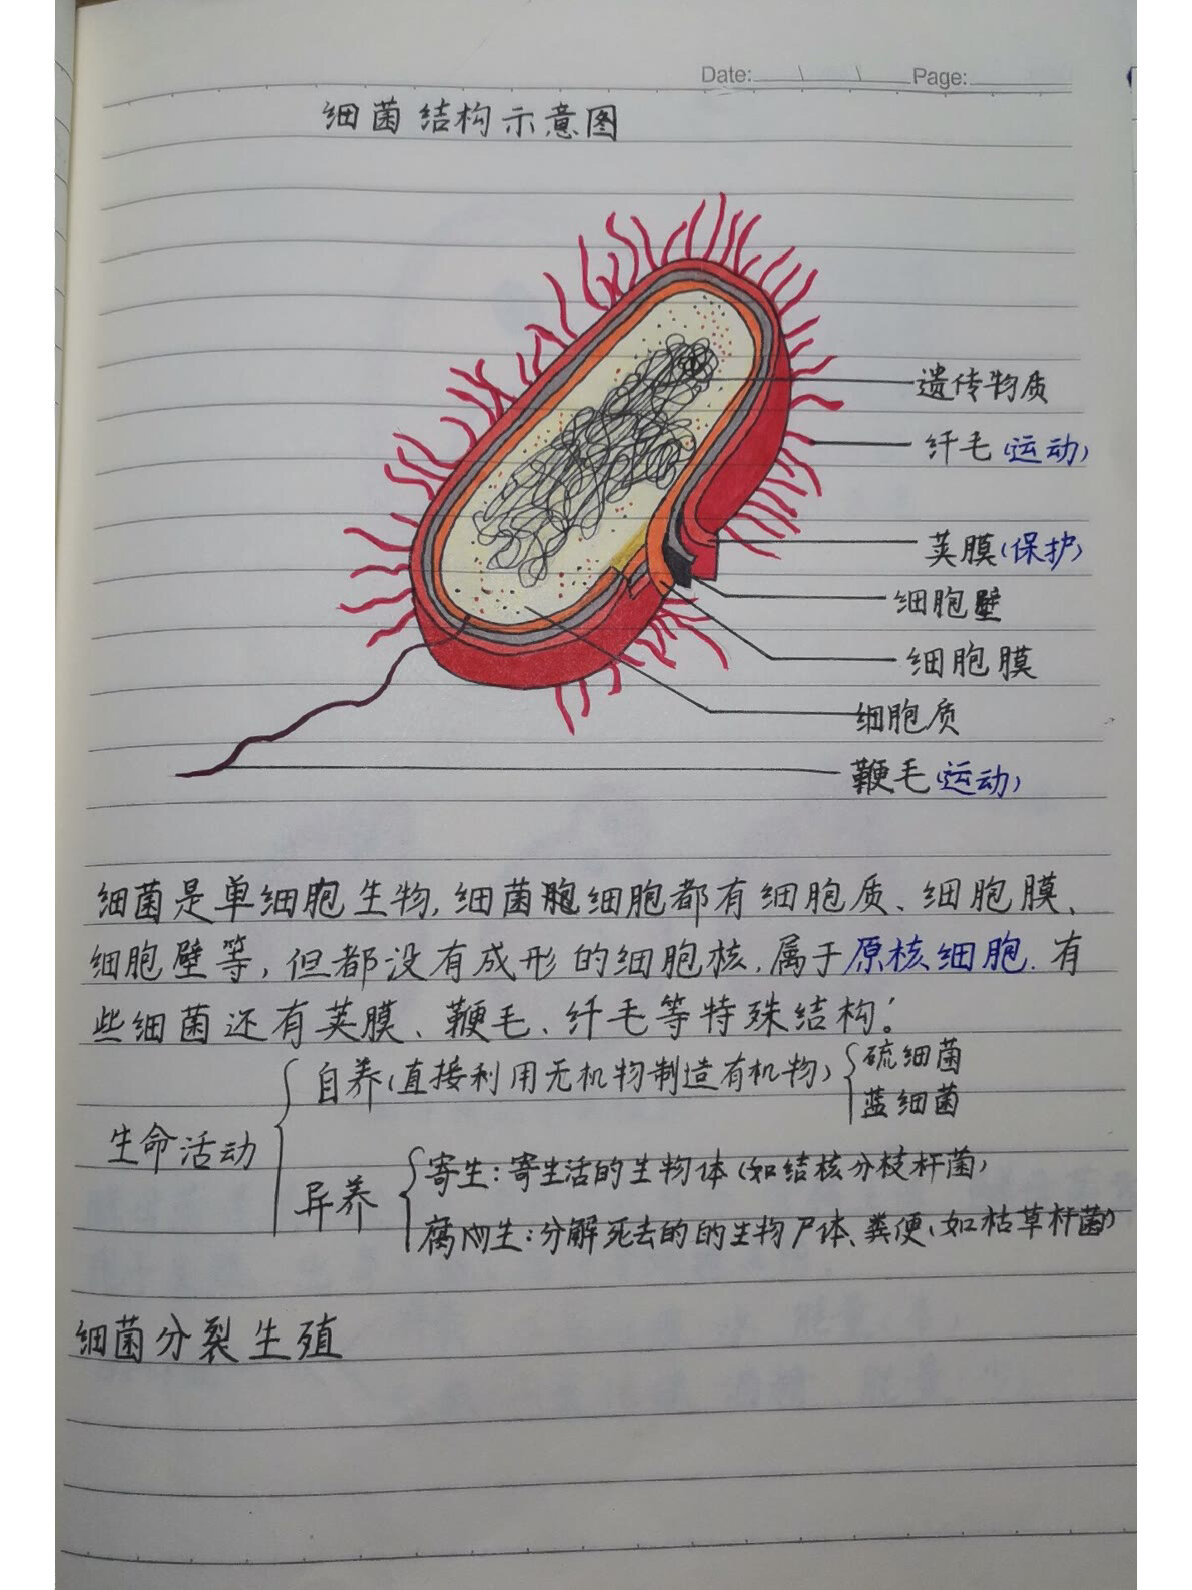 Date: \ \ Page:
细菌结构示意图
遗传物质
纤毛(运动)
荚膜(保护)
细胞壁
细胞膜
细胞质
鞭毛(运动)
细菌是单细胞生物,细菌细胞都有细胞质、细胞膜、
细胞壁等,但都没有成形的细胞核,属于原核细胞.有
些细菌还有荚膜、鞭毛、纤毛等特殊结构.
自养(直接利用无机物制造有机物)
硫细菌
蓝细菌
生命活动
异养
寄生:寄生活的生物体(如结核分枝杆菌)
腐生:分解死去的的生物尸体、粪便(如枯草杆菌)
细菌分裂生殖